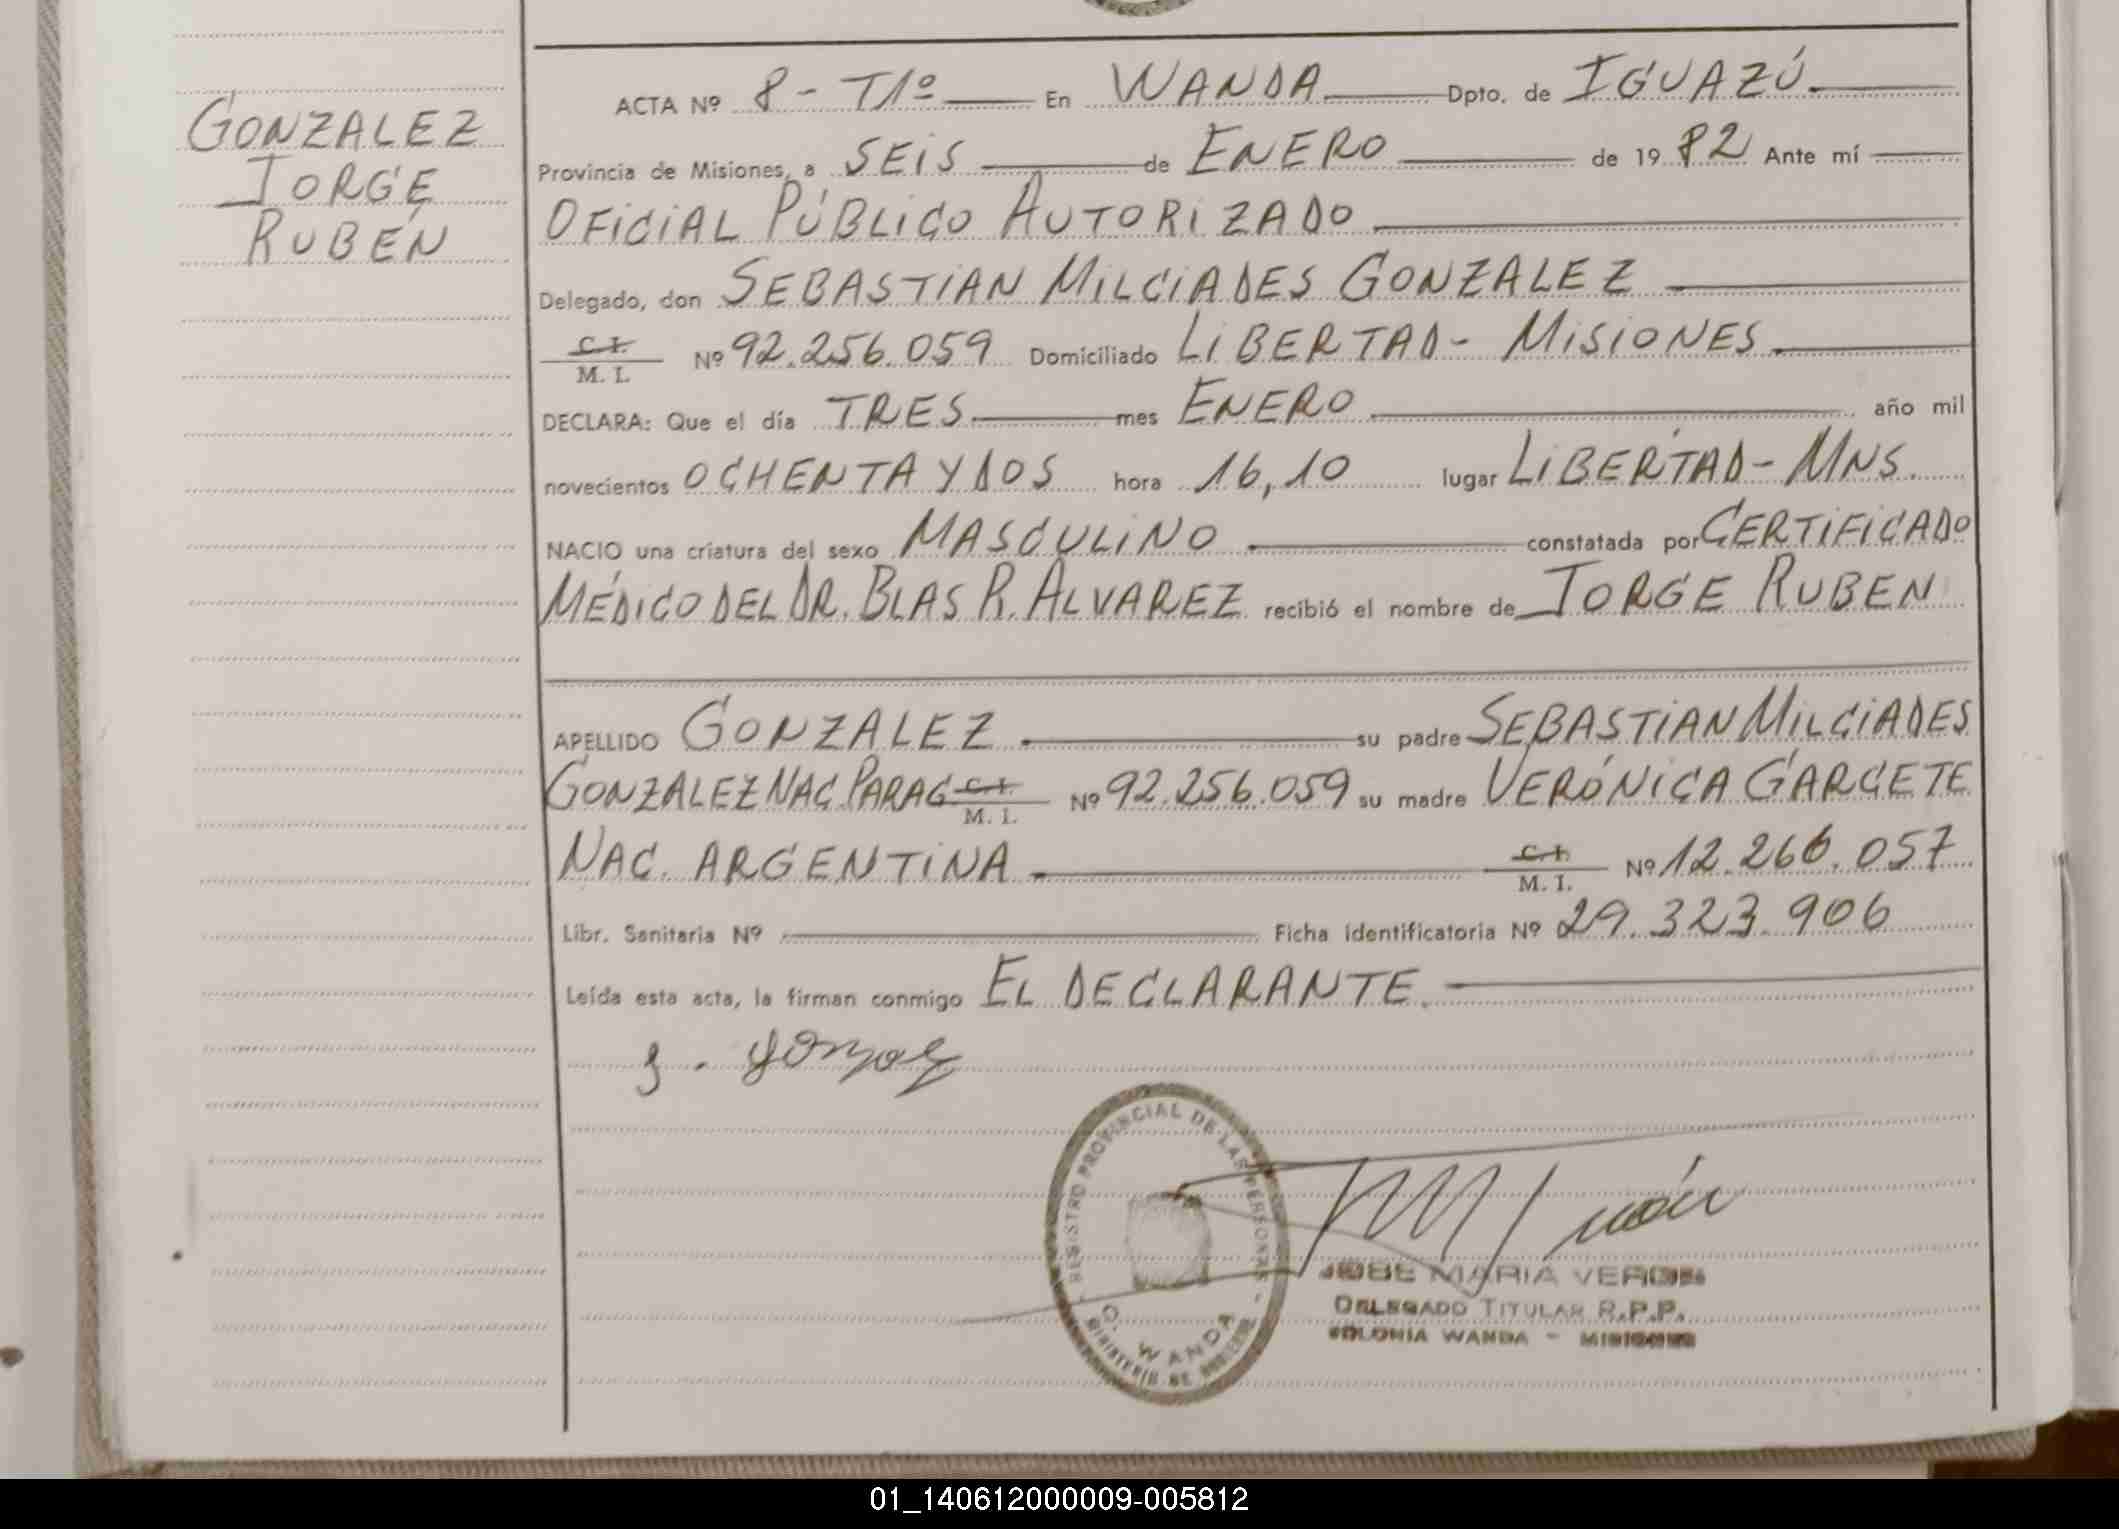 GONZALEZ
JORGE
RUBÉN
ACTA Nº 8 - T1º En WANDA Dpto. de IGUAZÚ
Provincia de Misiones, a SEIS de ENERO de 1982 Ante mí
OFICIAL PÚBLICO AUTORIZADO
Delegado, don SEBASTIAN MILCIADES GONZALEZ
C.I.
M. I. Nº 92.256.059 Domiciliado LIBERTAD - MISIONES
DECLARA: Que el día TRES mes ENERO año mil
novecientos OCHENTA Y DOS hora 16,10 lugar LIBERTAD - MNS.
NACIO una criatura del sexo MASCULINO constatada por CERTIFICADO
MÉDICO DEL DR. BLAS R. ALVAREZ recibió el nombre de JORGE RUBEN
APELLIDO GONZALEZ su padre SEBASTIAN MILCIADES
GONZALEZ NAC. PARAG C.I. M. I. Nº 92.256.059 su madre VERÓNICA GARCETE
NAC. ARGENTINA C.I. M. I. Nº 12.266.057
Libr. Sanitaria Nº Ficha identificatoria Nº 29.323.906
Leída esta acta, la firman conmigo EL DECLARANTE.
REGISTRO PROVINCIAL DE LAS PERSONAS
WANDA
JOSE MARIA
DELEGADO TITULAR R.P.P.
COLONIA WANDA - MISIONES
01_140612000009-005812